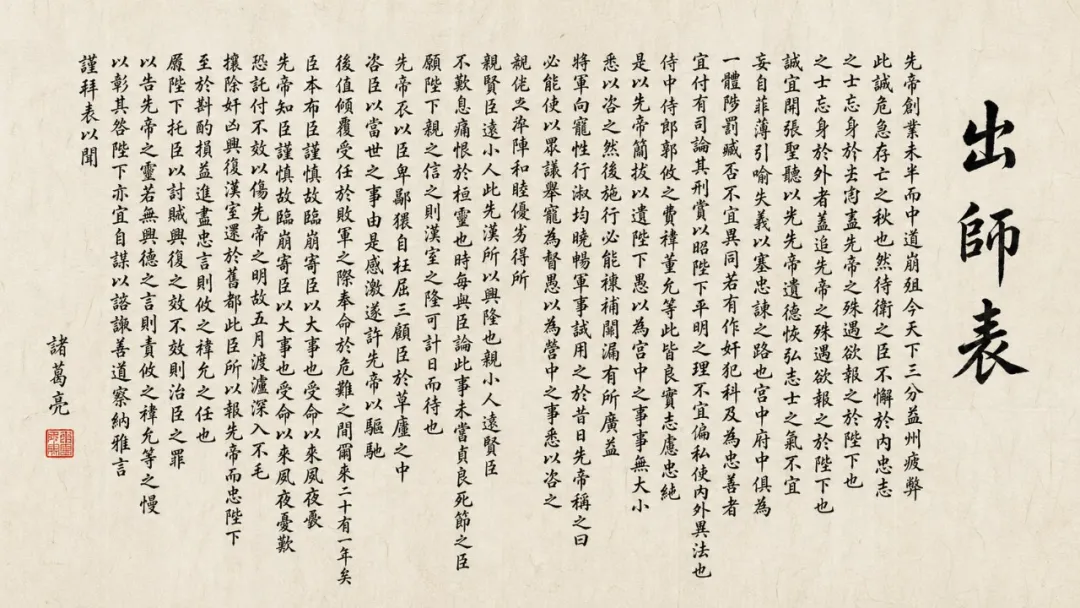 出師表
先帝創業未半而中道崩殂今天下三分益州疲弊
此誠危急存亡之秋也然待衛之臣不懈於內忠志
之士忘身於外者蓋先帝之殊遇欲報之於陛下也
之士忘身於外者蓋追先帝之殊遇欲報之於陛下也
誠宜開張聖聽以光先帝遺德恢弘志士之氣不宜
妄自菲薄引喻失義以塞忠諫之路也宮中府中俱為
一體陟罰臧否不宜異同若有作奸犯科及為忠善者
宜付有司論其刑賞以昭陛下平明之理不宜偏私使內外異法也
侍中侍郎郭攸之費禕董允等此皆良實志慮忠純
是以先帝簡拔以遺陛下愚以為宮中之事事無大小
悉以咨之然後施行必能裨補闕漏有所廣益
將軍向寵性行淑均曉暢軍事試用之於昔日先帝稱之曰
必能使以眾議舉寵為督愚以為營中之事悉以咨之
親佬之陣和睦優劣得所
親賢臣遠小人此先漢所以興隆也親小人遠賢臣
不歎息痛恨於桓靈也時每與臣論此事未嘗貞良死節之臣
願陛下親之信之則漢室之隆可計日而待也
先帝不以臣卑鄙猥自枉屈三顧臣於草廬之中
咨臣以當世之事由是感激遂許先帝以驅馳
後值傾覆受任於敗軍之際奉命於危難之間爾來二十有一年矣
臣本布臣謹慎故臨崩寄臣以大事也受命以來夙夜憂
先帝知臣謹慎故臨崩寄臣以大事也受命以來夙夜憂歎
恐託付不效以傷先帝之明故五月渡瀘深入不毛
攘除奸凶興復漢室還於舊都此臣所以報先帝而忠陛下
至於斟酌損益進盡忠言則攸之禕允之任也
陛下托臣以討賊興復之效不效則治臣之罪
以告先帝之靈若無興德之言則責攸之禕允等之慢
以彰其咎陛下亦宜自謀以諮諏善道察納雅言
謹拜表以聞
諸葛亮